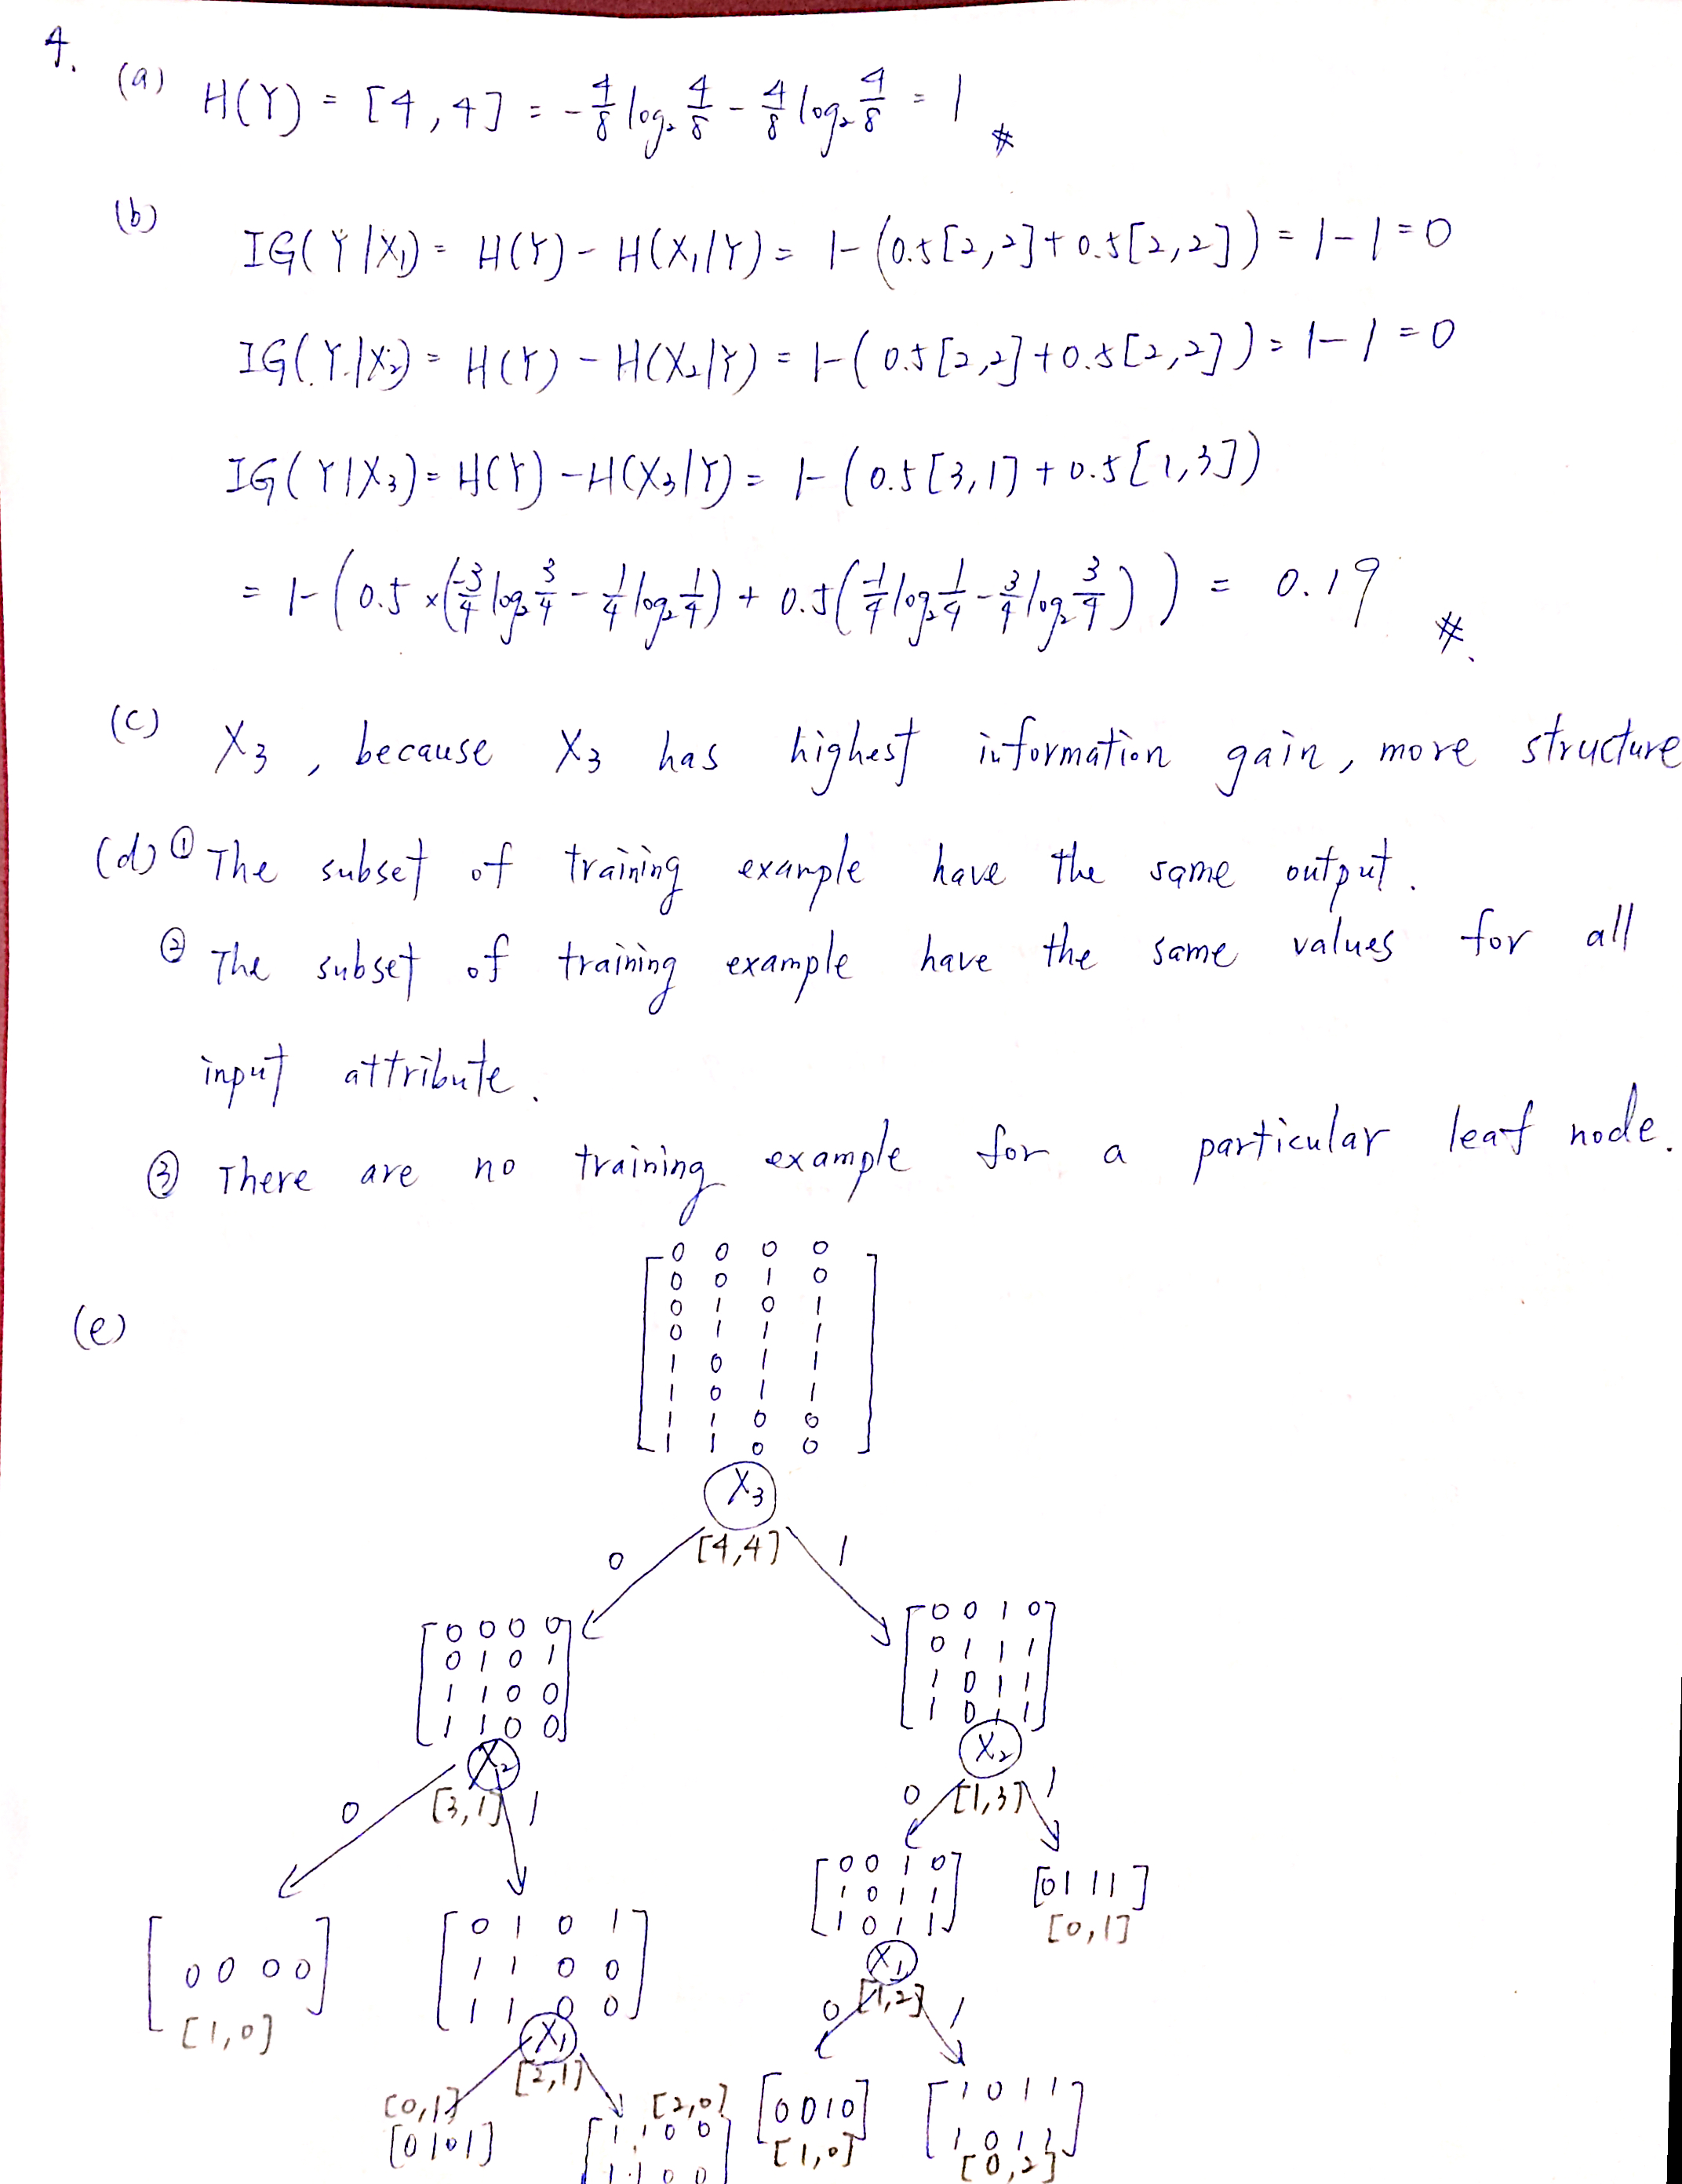 4.
(a) H(Y) = [4,4] = -4/8 log₂ 4/8 - 4/8 log₂ 4/8 = 1 #
(b) IG(Y|X₁) = H(Y) - H(X₁|Y) = 1-(0.5[2,2]+0.5[2,2]) = 1-1=0
IG(Y|X₂) = H(Y) - H(X₂|Y) = 1-(0.5[2,2]+0.5[2,2]) = 1-1=0
IG(Y|X₃) = H(Y) - H(X₃|Y) = 1-(0.5[3,1]+0.5[1,3])
= 1-(0.5×(-3/4 log₂ 3/4 - 1/4 log₂ 1/4) + 0.5(-1/4 log₂ 1/4 - 3/4 log₂ 3/4)) = 0.19 #
(c) X₃, because X₃ has highest information gain, more structure
(d) ① The subset of training example have the same output.
② The subset of training example have the same values for all
input attribute.
③ There are no training example for a particular leaf node.
(e)
0 0 0 0
0 0 1 0
0 1 0 1
0 1 1 1
1 0 1 1
1 0 1 1
1 1 0 0
1 1 0 0
X₃
0 [4,4] 1
0 0 0 0
0 1 0 1
1 1 0 0
1 1 0 0
X₂
0 [3,1] 1
0 0 1 0
0 1 1 1
1 0 1 1
1 0 1 1
X₂
0 [1,3] 1
[0 0 0 0]
[1,0]
0 1 0 1
1 1 0 0
1 1 0 0
X₁
[2,1]
0 0 1 0
1 0 1 1
1 0 1 1
X₁
0 [1,2] 1
[0 1 1 1]
[0,1]
[0,1]
[0 1 0 1]
[2,0]
1 1 0 0
1 1 0 0
[0 0 1 0]
[1,0]
1 0 1 1
1 0 1 1
[0,2]